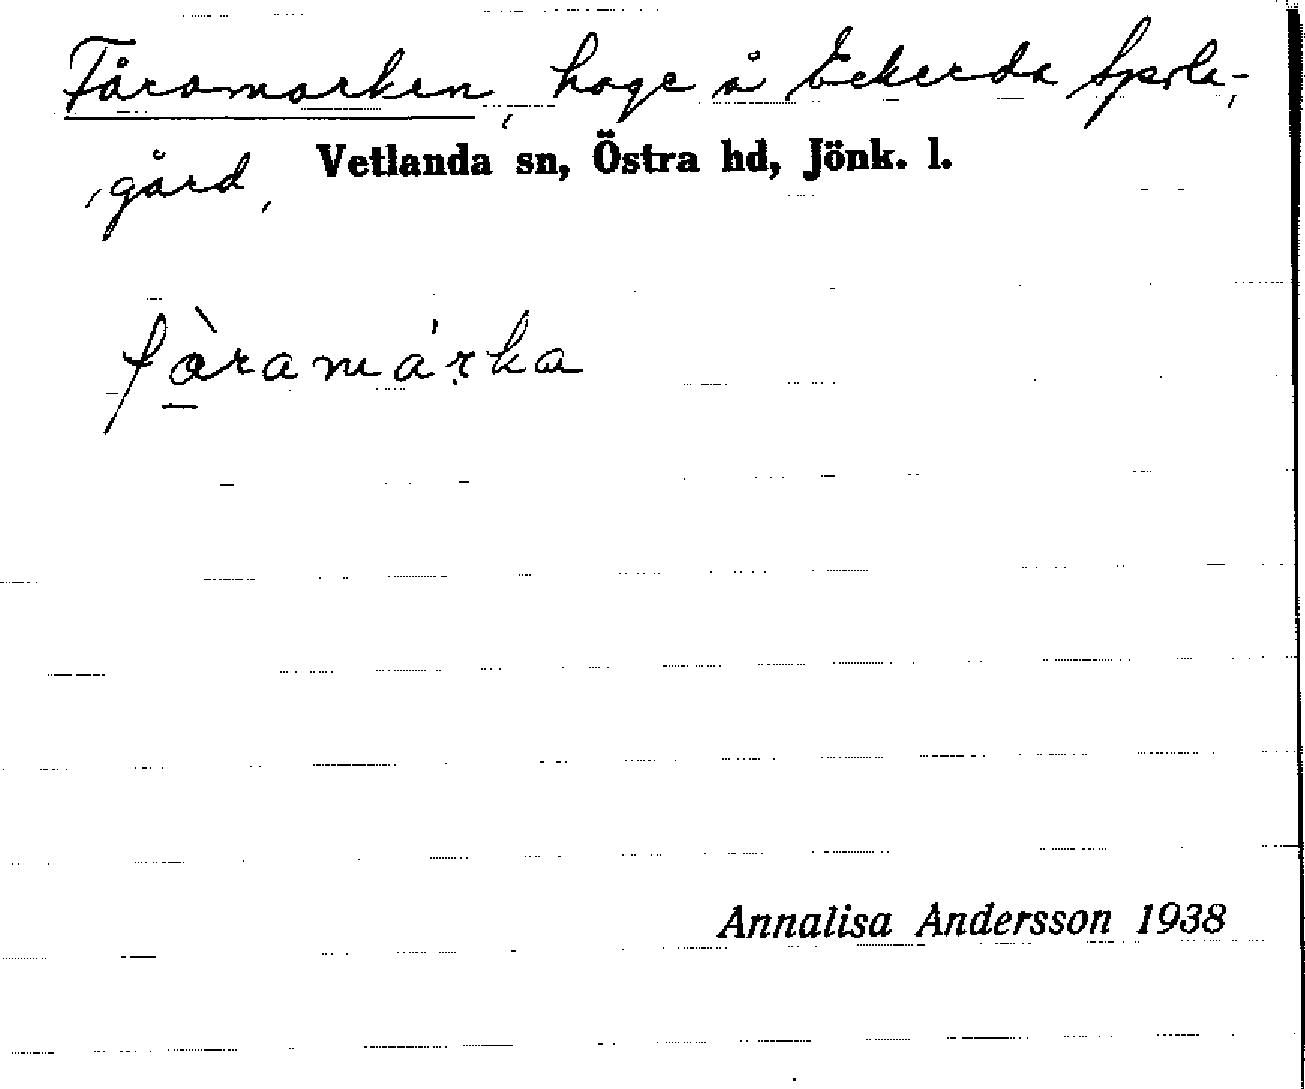 Fåramarken, hage å Ekerda Spole-,
gård, Vetlanda sn, Östra hd, Jönk. l.
fàramárka
Annalisa Andersson 1938